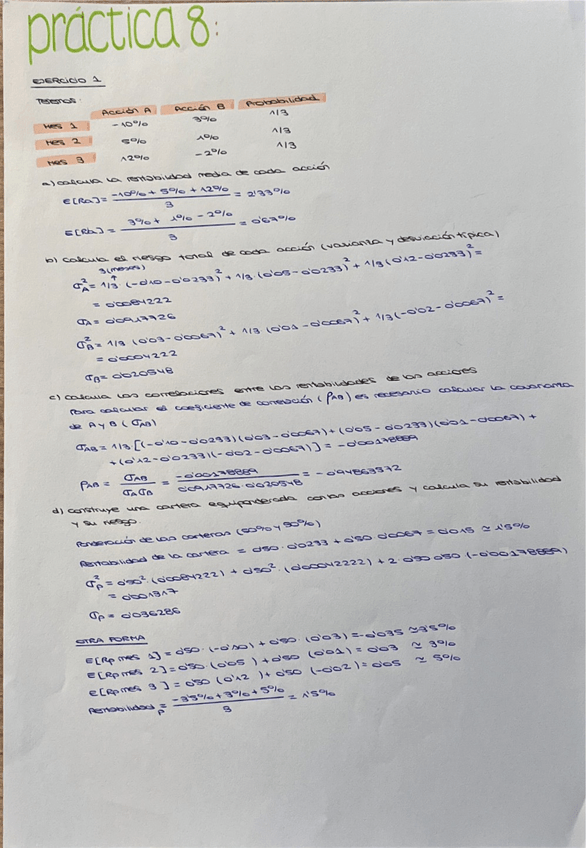 práctica 8:
EJERCICIO 1
Tenemos:
Acción A Acción B Probabilidad
Mes 1 -10% 3% 1/3
Mes 2 5% 1% 1/3
Mes 3 12% -2% 1/3
a) calcula la rentabilidad media de cada acción
E[Ra] = (-10% + 5% + 12%) / 3 = 2'33%
E[Rb] = (3% + 1% - 2%) / 3 = 0'67%
b) calcula el riesgo total de cada acción (varianza y desviación típica)
3(meses)
σ²A = 1/3 · (-0'10 - 0'0233)² + 1/3 · (0'05 - 0'0233)² + 1/3 (0'12 - 0'0233)² =
= 0'0084222
σA = 0'0917726
σ²B = 1/3 (0'03 - 0'0067)² + 1/3 (0'01 - 0'0067)² + 1/3 (-0'02 - 0'0067)² =
= 0'0004222
σB = 0'020548
c) calcula las correlaciones entre las rentabilidades de las acciones
Para calcular el coeficiente de correlación (ρAB) es necesario calcular la covarianza
de A y B (σAB)
σAB = 1/3 [(-0'10 - 0'0233)(0'03 - 0'0067) + (0'05 - 0'0233)(0'01 - 0'0067) +
+ (0'12 - 0'0233)(-0'02 - 0'0067)] = -0'00178889
ρAB = σAB / σA σB = -0'00178889 / 0'0917726 · 0'020548 = -0'94863372
d) construye una cartera equiponderada con las acciones y calcula su rentabilidad
y su riesgo.
Ponderación de las carteras (50% y 50%)
Rentabilidad de la cartera = 0'50 · 0'0233 + 0'50 · 0'0067 = 0'015 ≃ 1'5%
σ²p = 0'50² · (0'0084222) + 0'50² · (0'00042222) + 2 · 0'50 · 0'50 (-0'00178889)
= 0'001317
σp = 0'036286
OTRA FORMA
E[Rp mes 1] = 0'50 · (-0'10) + 0'50 · (0'03) = -0'035 ≃ 3'5%
E[Rp mes 2] = 0'50 (0'05) + 0'50 (0'01) = 0'03 ≃ 3%
E[Rp mes 3] = 0'50 (0'12) + 0'50 (-0'02) = 0'05 ≃ 5%
Rentabilidad p = (-3'5% + 3% + 5%) / 3 = 1'5%